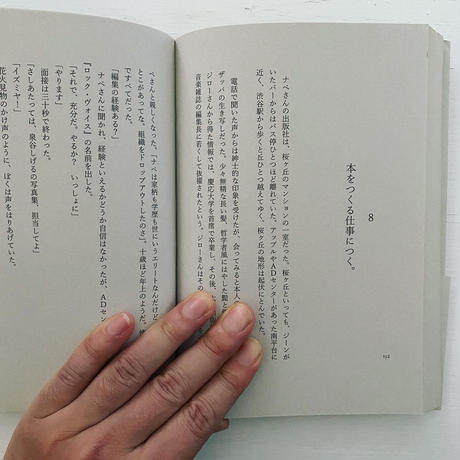 8
本をつくる仕事につく。
ナベさんの出版社は、桜ヶ丘のマンションの一室だった。桜ヶ丘といっても、ジーンが
いたバーからはバス停ひとつほど離れていた。アップルやADセンターがあった南平台に
近く、渋谷駅から歩くと丘ひとつ越えてゆく。桜ヶ丘の地形は起伏にとんでいた。
電話で聞いた声からは紳士的な印象を受けたが、会ってみると本人
ザッパの生き写しだった。少々無精な長い髪、哲学者風にはやした髭と
ジローさんから得た情報では、慶応大学を首席で卒業し、その後、
音楽雑誌の編集長に若くして抜擢されたという。ジローさんはその
192
ベさんと親しくなった。「ナベは家柄も学歴も世にいうエリートなんだけど
とこがあってな。組織をドロップアウトしたのさ」。十歳ほど年上のようだ。
ですべてだった。
「編集の経験ある？」
ナベさんに聞かれ、経験といえるかどうか自信はなかったが、ADセン
『ロック・ヴォイス』の名前を出した。
「それで、充分だ。やるか？　いっしょに」
「やります」
面接は三十秒で終わった。
「さしあたっては、泉谷しげるの写真集、担当してよ」
「イズミヤ！」
花火見物のかけ声のように、ぼくは声をはりあげていた。